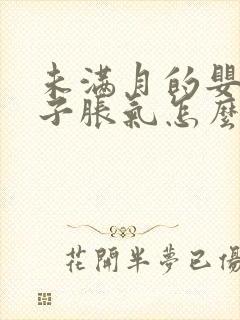 未满月的嬰
子脹氣怎麼
花開半夢已傷